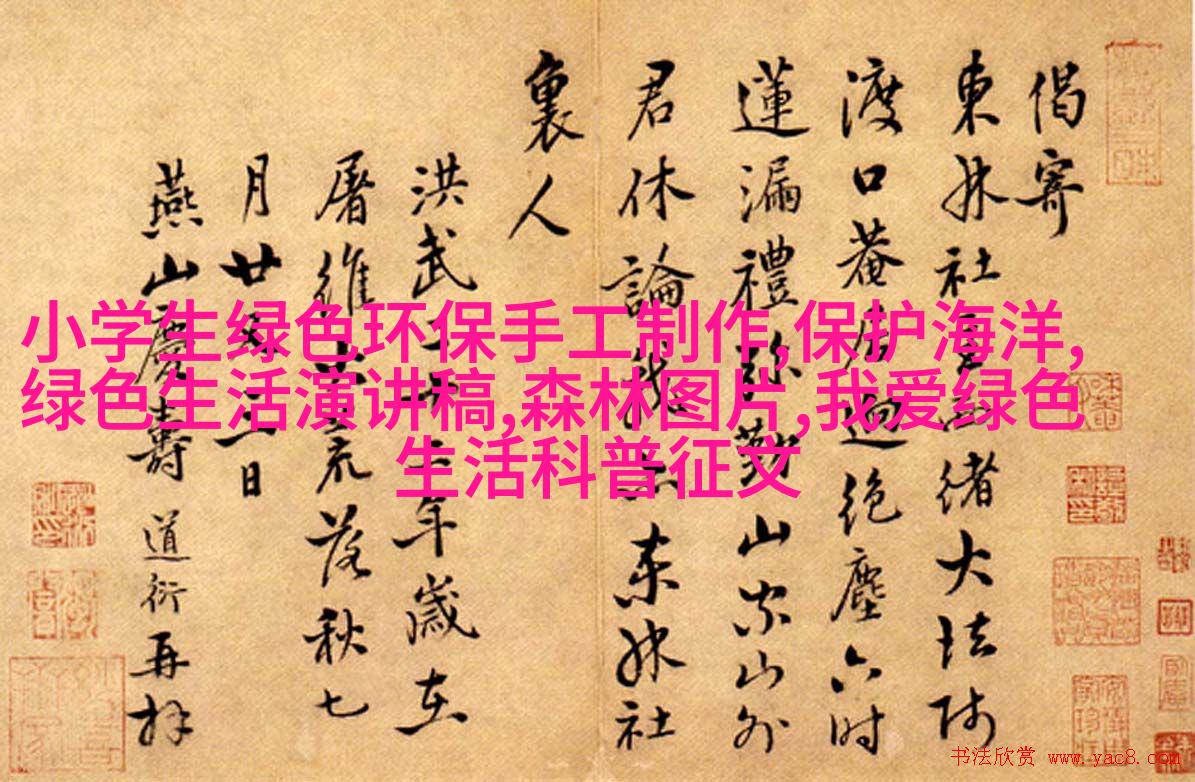 偈寄
東林社緒大法師
渡口菴居迥絕塵六時
蓮漏禮弥勤山家山外
君休論我東林社
裏人
洪武二十二年歲在
屠維大荒落秋七
月廿日
燕山慶壽道衍再拜
小学生绿色环保手工制作,保护海洋,
绿色生活演讲稿,森林图片,我爱绿色
生活科普征文
书法欣赏 www.yac8.com